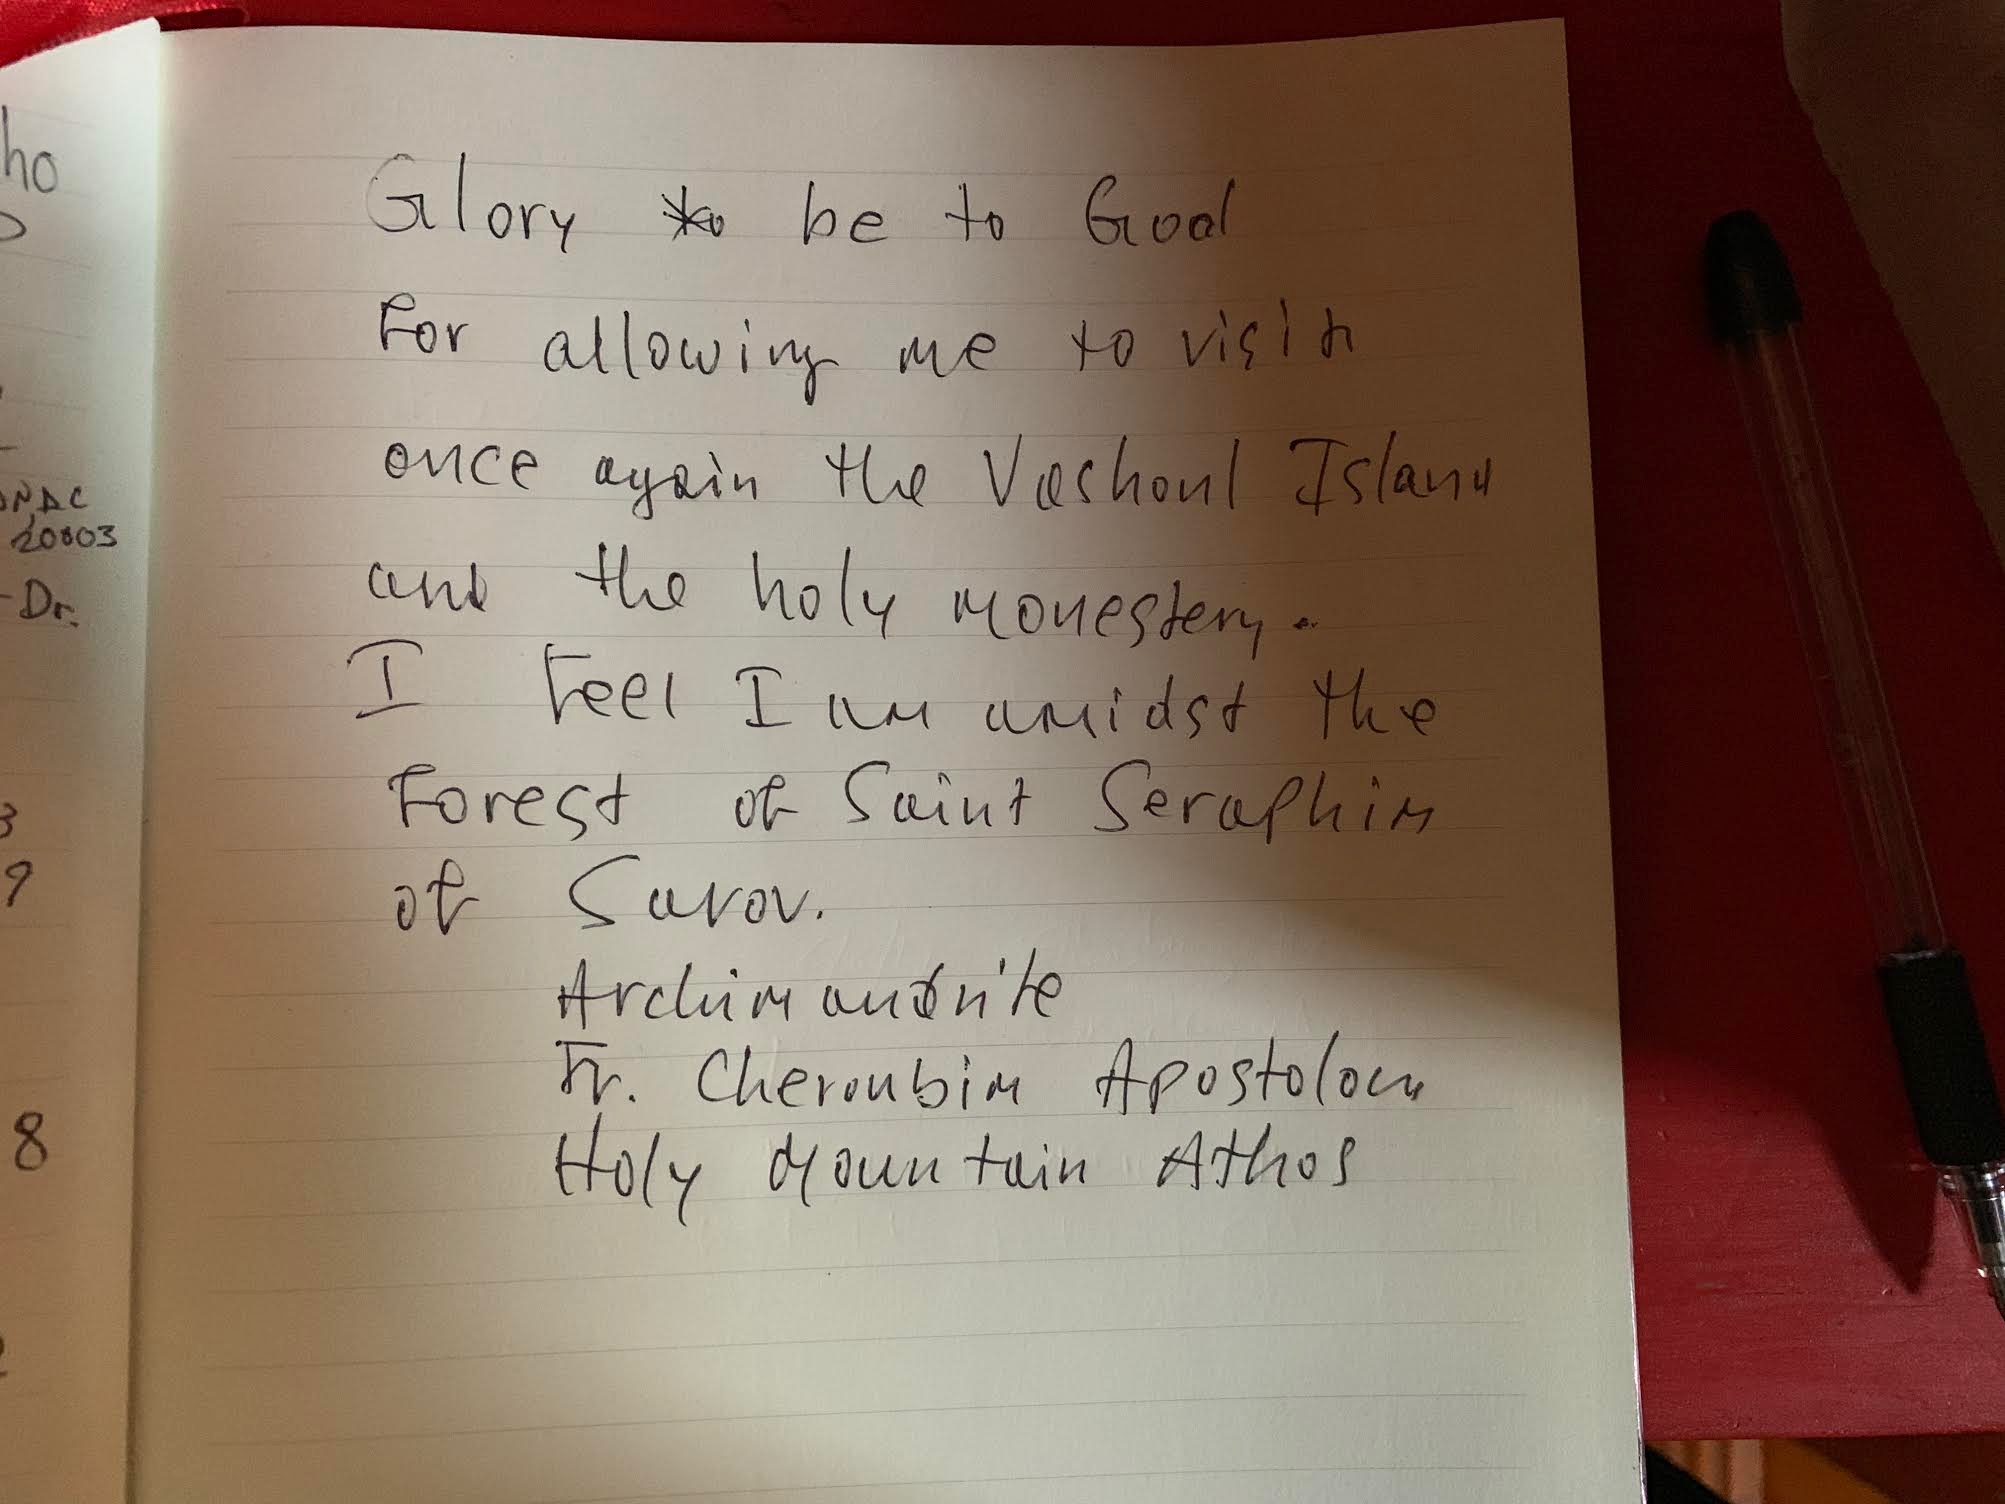 ho
ONDC
20003
-Dr.
3
9
8
Glory be to God
For allowing me to visit
once again the Vashonl Island
and the holy monestery.
I Feel I am amidst the
Forest of Saint Seraphim
of Sarov.
Archimandrite
Fr. Cheroubim Apostolou
Holy Mountain Athos